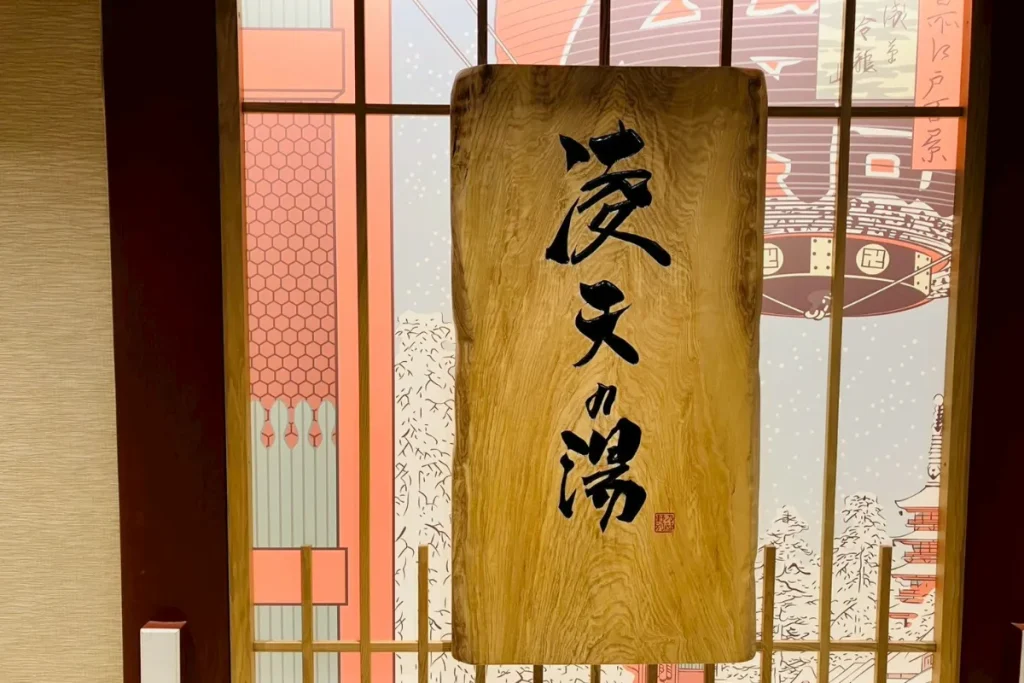 凌天の湯
所江戸百景
浅草
金龍山